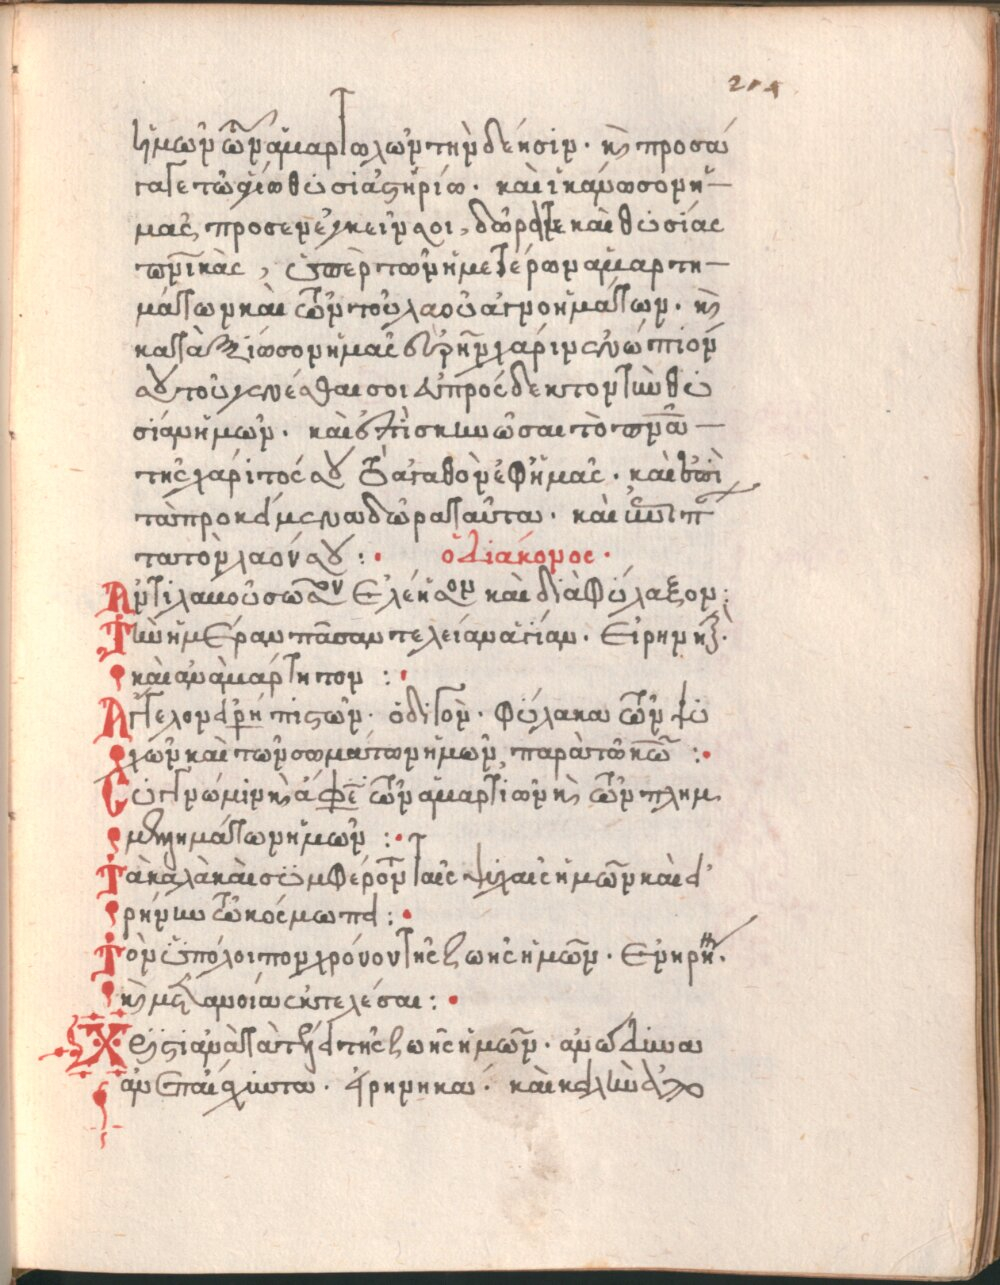 ἡμῶν τῶν ἁμαρτωλῶν τὴν δέησιν. κ προσά
γαγε τῶ ἁγίω θυσιαστηρίω. καὶ ἱκάνωσον ἡ
μᾶς προσενεγκεῖν σοι, δῶρά τε καὶ θυσίας
πνικὰς, ὑπὲρ τῶν ἡμετέρων ἁμαρτη
μάτων καὶ τῶν τοῦ λαοῦ ἀγνοημάτων. κ
καταξίωσον ἡμᾶς εὑρεῖν χάριν ἐνώπιόν
σου τοῦ γενέσθαι σοι εὐπρόσδεκτον τὴν θυ
σίαν ἡμῶν. καὶ ἐπισκηνῶσαι τὸ πνα
τῆς χάριτός σου τὸ ἀγαθὸν ἐφ' ἡμᾶς. καὶ ἐπὶ
τὰ προκείμενα δῶρα ταῦτα. καὶ ἐπὶ π
τα τὸν λαόν σου: ὁ διάκονος.
Ἀντιλαβοῦ σῶσον ἐλέησον καὶ διαφύλαξον:
Τὴν ἡμέραν πᾶσαν τελείαν ἁγίαν. εἰρηνικ.
καὶ ἀναμάρτητον:
Ἄγγελον εἰρήνης πιστὸν. ὁδηγὸν. φύλακα τῶν ψυ
χῶν καὶ τῶν σωμάτων ἡμῶν, παρὰ τοῦ κυ:
Συγγνώμην κ ἄφεσιν τῶν ἁμαρτιῶν κ τῶν πλημ
μελημάτων ἡμῶν:
Τὰ καλὰ καὶ συμφέροντα ταῖς ψυχαῖς ἡμῶν καὶ εἰ
ρήνην τῶ κόσμω π:
Τὸν ὑπόλοιπον χρόνον τῆς ζωῆς ἡμῶν. ἐν εἰρήνη.
κ μετανοία ἐκτελέσαι:
Χριστιανὰ τὰ τέλη τῆς ζωῆς ἡμῶν. ἀνώδυνα
ἀνεπαίσχυντα. εἰρηνικά. καὶ καλὴν ἀπο